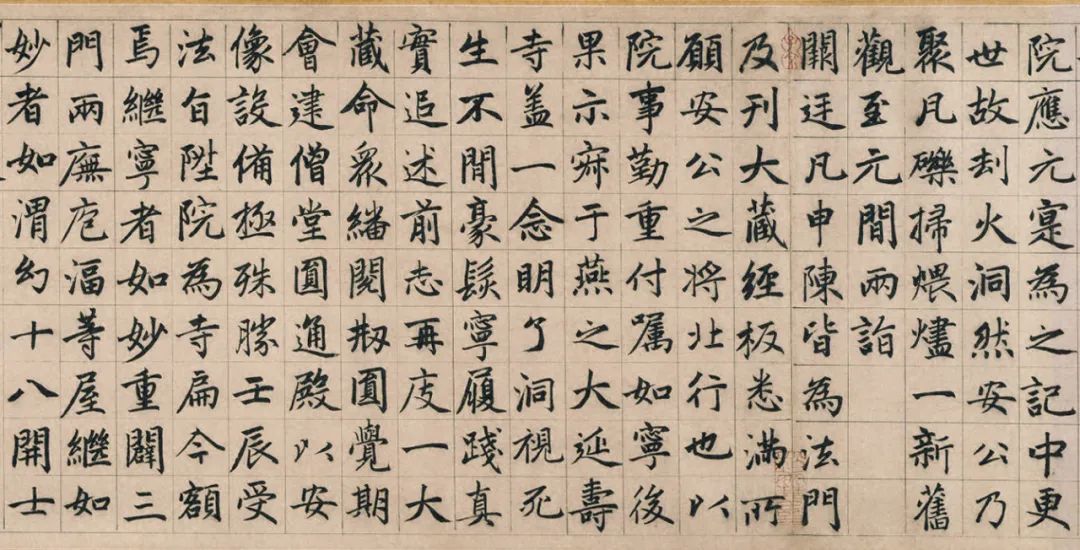 院應元寔為之記中更
世故刦火洞然安公乃
聚瓦礫掃煨燼一新舊
觀至元間兩詣
闕廷凡申陳皆為法門
及刊大藏經板悉滿所
願安公之將北行也以
院事勤重付囑如寧後
果示寂于燕之大延壽
寺盖一念明了洞視死
生不間豪髮寧履踐真
實追述前志再庋一大
藏命眾繙閱刱圓覺期
會建僧堂圓通殿以安
像設備極殊勝壬辰受
法旨陞院為寺扁今額
焉繼寧者如妙重闢三
門兩廡庖湢等屋繼如
妙者如渭幻十八開士